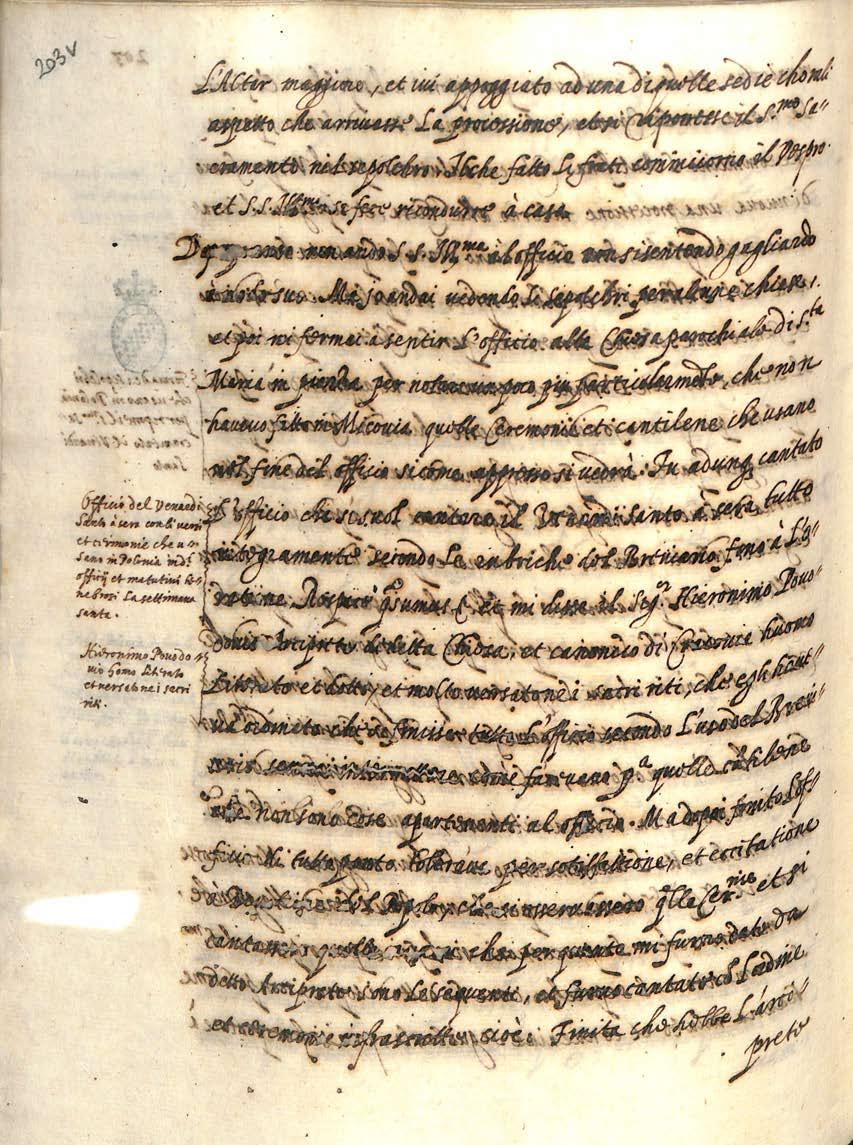 203v
L'Altar maggiore, et ivi appoggiato ad una di quelle sedie chorali
aspettò che arrivasse La processione, et si riponesse il S.mo Sa=
cramento nel sepolchro. Il che fatto li frati cominciorno il Vespro
et S. S. Ill.ma se fece ricondurre à casa
non andò S. S. Ill.ma al officio non si sentendo gagliardo
à modo suo. Ma io andai vedendo li sepolchri per alcune chiese,
et poi mi fermai à sentir L'officio alla Chiesa parochiale di S.ta
Maria in piazza per notare un poco piu particularmente, che non
havevo fatto in Micovia quelle Ceremonie et cantilene che usano
nel fine del officio si come appresso si vedrà. Fu adunq cantato
L'officio che si suol cantare il Venerdi santo à sera tutto
integramente secondo Le rubriche del Breviario fino à L'o=
ratione Respice qs sumus et mi disse il Sig.r Hieronimo Povo=
dovio Arciprete di detta Chiesa, et canonico di Cracovia huomo
Litterato et dotto, et molto versato ne i sacri riti, che egli have=
va ordinato che si finisse tutto L'officio secondo L'uso del Brevi=
ario come facevano p.a quelle cantilene
che non sono cose apartenenti al officio. Ma dopoi finito L'of=
ficio in tutto ponto tolerava per sotisfattione, et eccitatione
à Devotione del Popolo, che si osservassero qlle Cer.nie et si
cantassero quelle che per quanto mi furno date da
detto Arciprete sono le sequenti, et furno cantate co L'ordine
et ceremonie infrascritte, cioè. Finita che hebbe L'arci=
prete
Officio del Venerdi
Santo à sera con li versi
et cermonie che u=
sano in Polonia in d.i
officij et matutini te=
nebrosi La settimana
santa.
Hieronimo Povodo=
vio homo literato
et versato ne i sacri
riti.